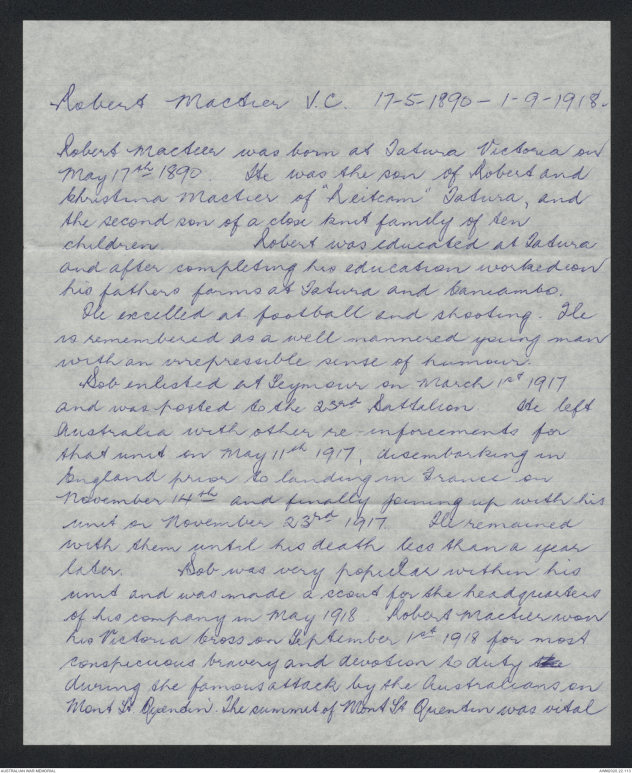 Robert Mactier V.C. 17-5-1890 - 1-9-1918.
Robert Mactier was born at Tatura Victoria on
May 17th 1890. He was the son of Robert and
Christina Mactier of "Reitcam" Tatura, and
the second son of a close knit family of ten
children Robert was educated at Tatura
and after completing his education worked on
his fathers farms at Tatura and Caniambo.
He excelled at football and shooting. He
is remembered as a well mannered young man
with an irrepressible sense of humour.
Bob enlisted at Seymour on March 1st 1917
and was posted to the 23rd Battalion. He left
Australia with other re-inforcements for
that unit on May 11th 1917, disembarking in
England prior to landing in France on
November 14th and finally joining up with his
unit on November 23rd 1917. He remained
with them until his death less than a year
later. Bob was very popular within his
unit and was made a scout for the headquarters
of his company in May 1918. Robert Mactier won
his Victoria Cross on September 1st 1918 for most
conspicuous bravery and devotion to duty
during the famous attack by the Australians on
Mont St. Quentin. The summit of Mont St Quentin was vital
AUSTRALIAN WAR MEMORIAL